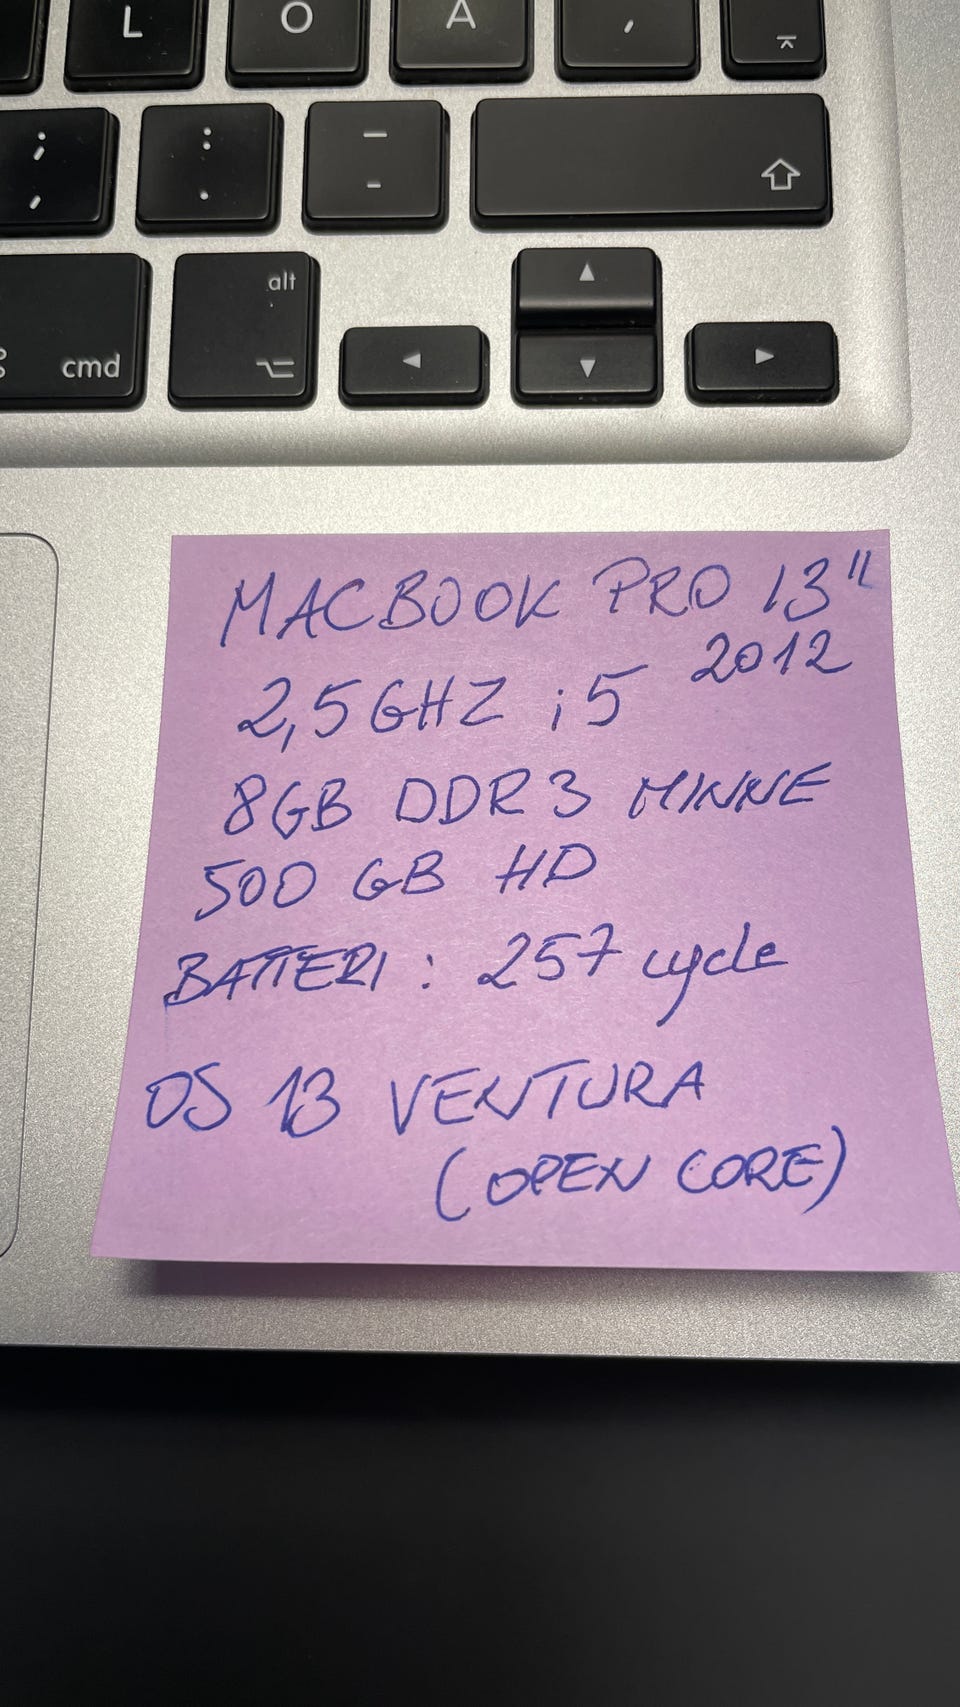 L Ö Ä '
; , : . _ -
alt
cmd
MACBOOK PRO 13"
2012
2,5GHZ i5
8GB DDR3 MINNE
500 GB HD
BATTERI: 257 cycle
OS 13 VENTURA
(OPEN CORE)